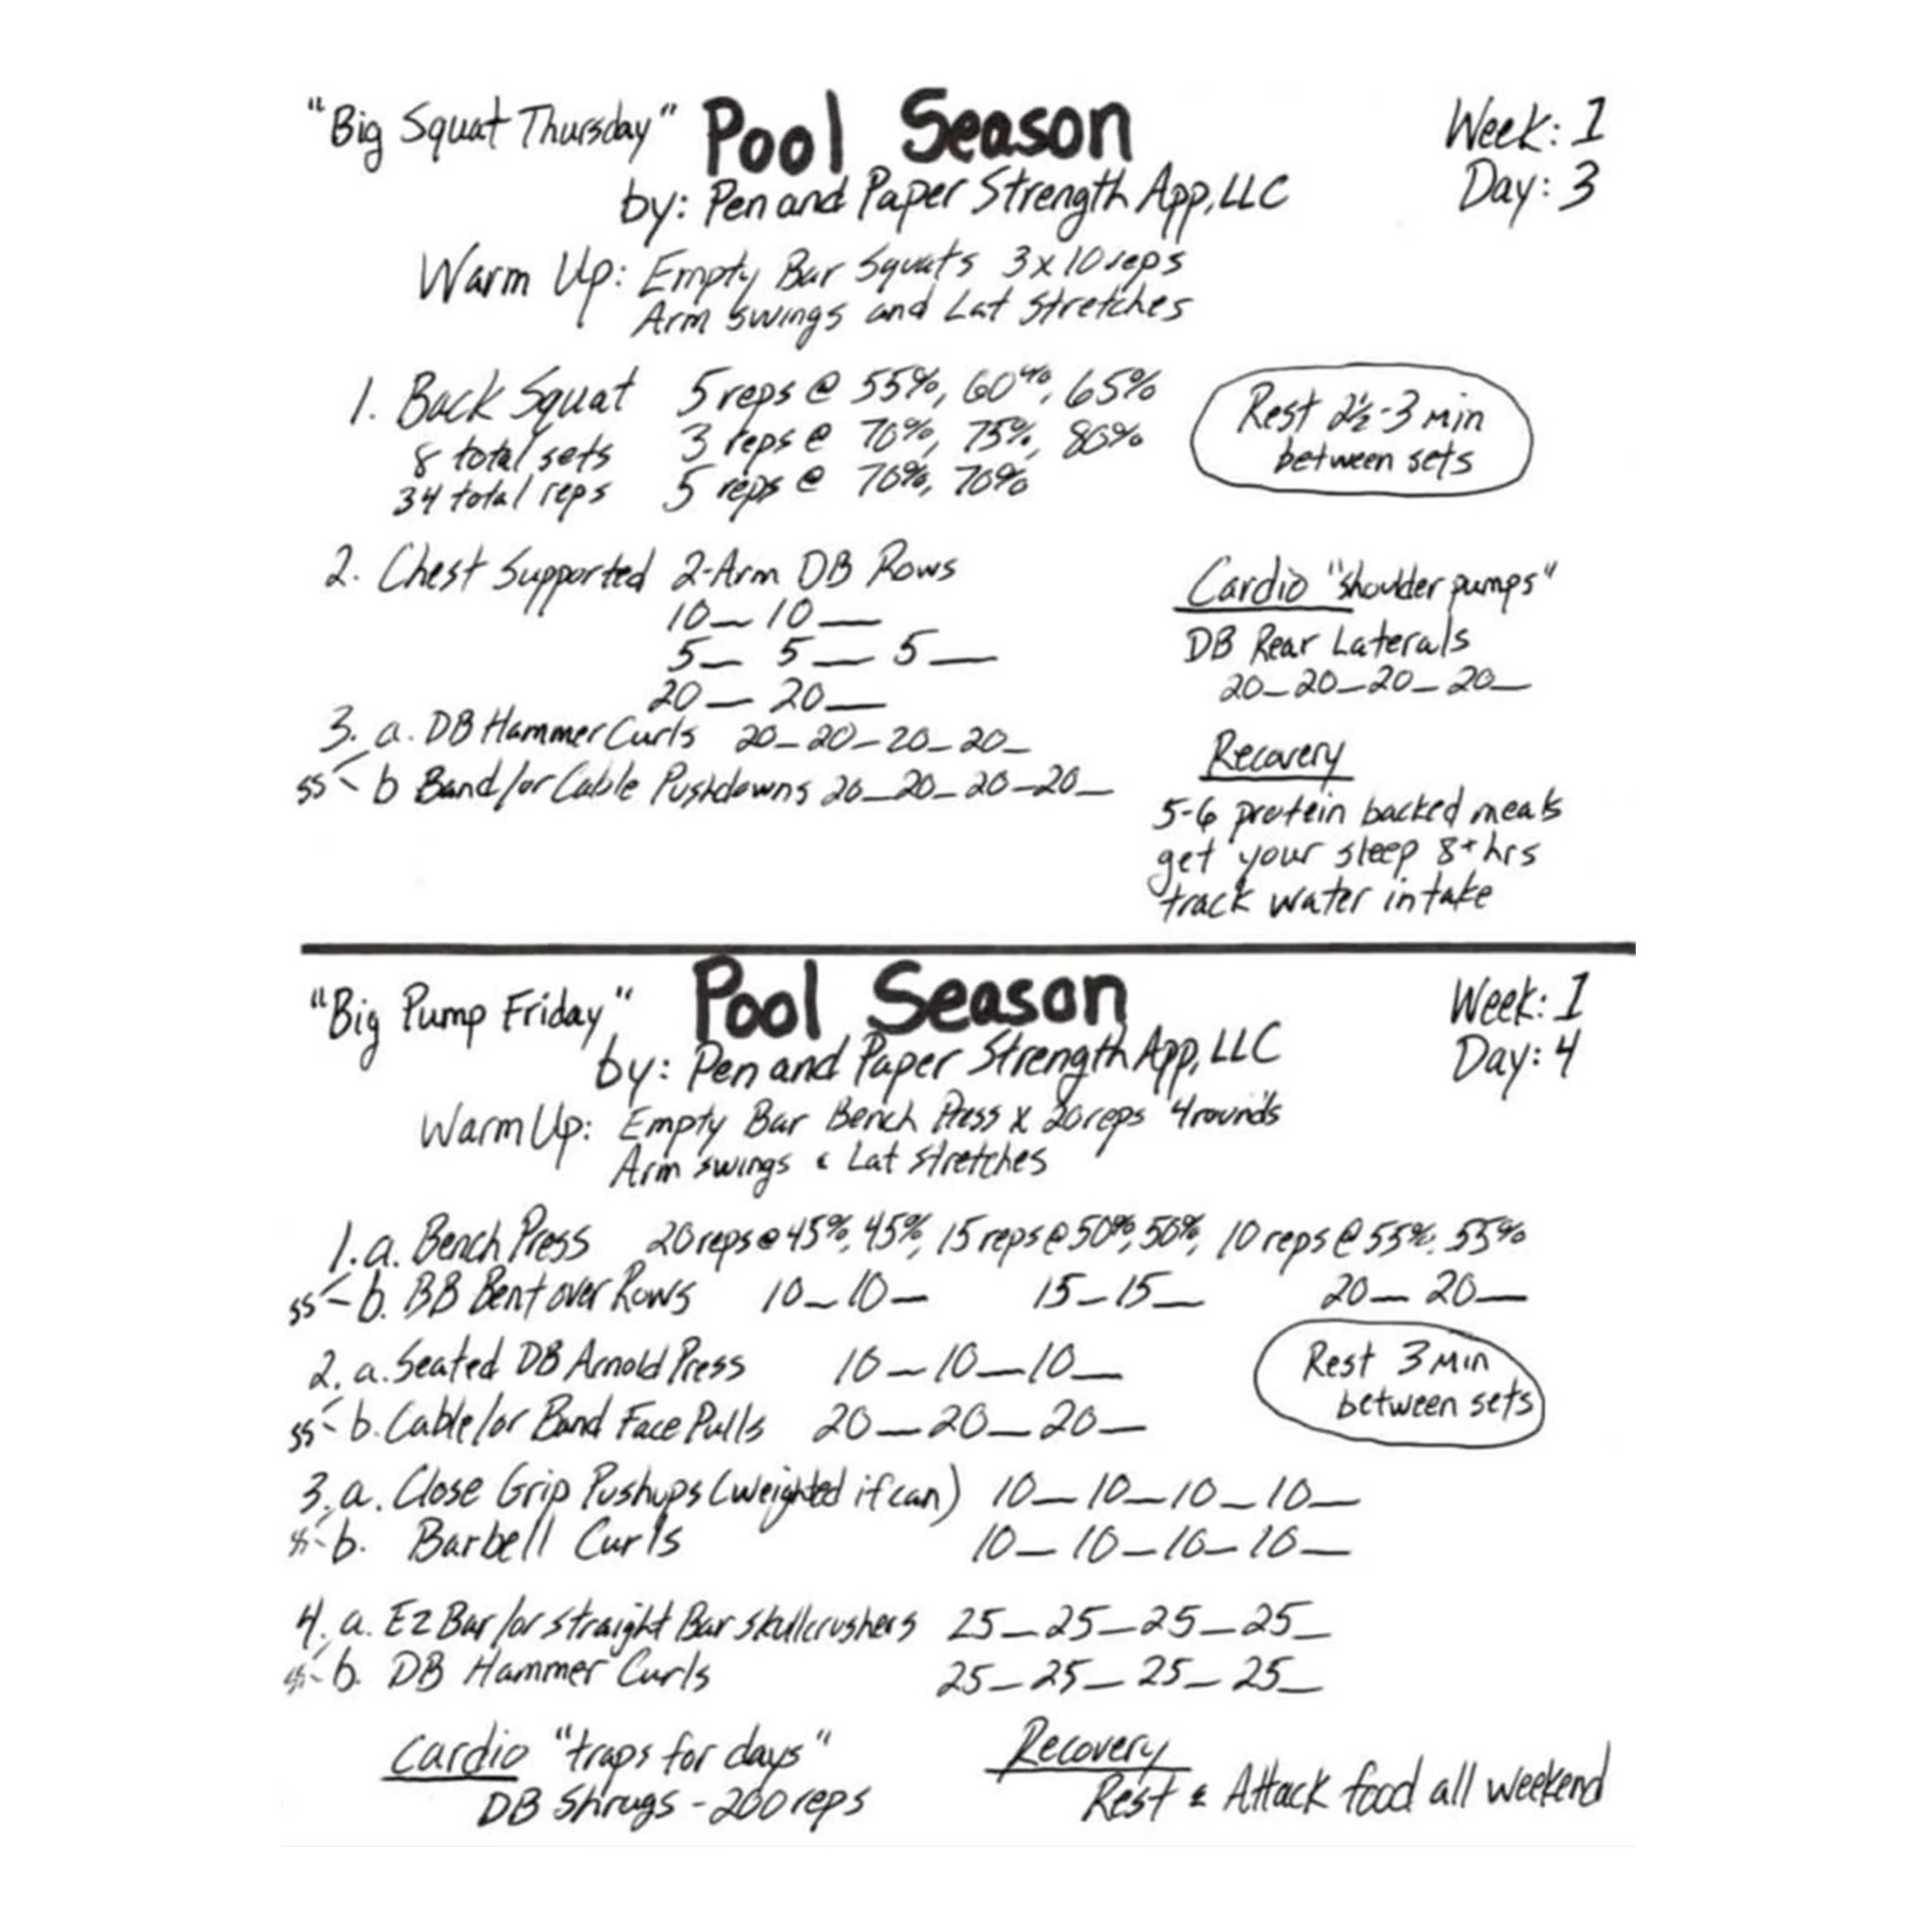 "Big Squat Thursday" Pool Season Week: 1
by: Pen and Paper Strength App, LLC Day: 3
Warm Up: Empty Bar Squats 3x10 reps
Arm swings and Lat Stretches
1. Back Squat 5 reps @ 55%, 60%, 65%
8 total sets 3 reps @ 70%, 75%, 80%
34 total reps 5 reps @ 70%, 70%
Rest 2½-3 min
between sets
2. Chest Supported 2-Arm DB Rows
10_ 10_
5_ 5_ 5_
20_ 20_
3. a. DB Hammer Curls 20_20_20_20_
ss b Band/or Cable Pushdowns 20_20_20_20_
Cardio "shoulder pumps"
DB Rear Laterals
20_20_20_20_
Recovery
5-6 protein backed meals
get your sleep 8+ hrs
track water intake
"Big Pump Friday" Pool Season Week: 1
by: Pen and Paper Strength App, LLC Day: 4
Warm Up: Empty Bar Bench Press x 20 reps 4 rounds
Arm swings & Lat stretches
1. a. Bench Press 20 reps @ 45%, 45%, 15 reps @ 50%, 50%, 10 reps @ 55%, 55%
ss b. BB Bent over Rows 10_10_ 15_15_ 20_ 20_
2. a. Seated DB Arnold Press 10_10_10_
ss b. Cable/or Band Face Pulls 20_20_20_
Rest 3 min
between sets
3. a. Close Grip Pushups (weighted if can) 10_10_10_10_
ss b. Barbell Curls 10_10_10_10_
4. a. EZ Bar/or straight Bar skullcrushers 25_25_25_25_
ss b. DB Hammer Curls 25_25_25_25_
Cardio "traps for days"
DB Shrugs - 200 reps
Recovery
Rest & Attack food all weekend